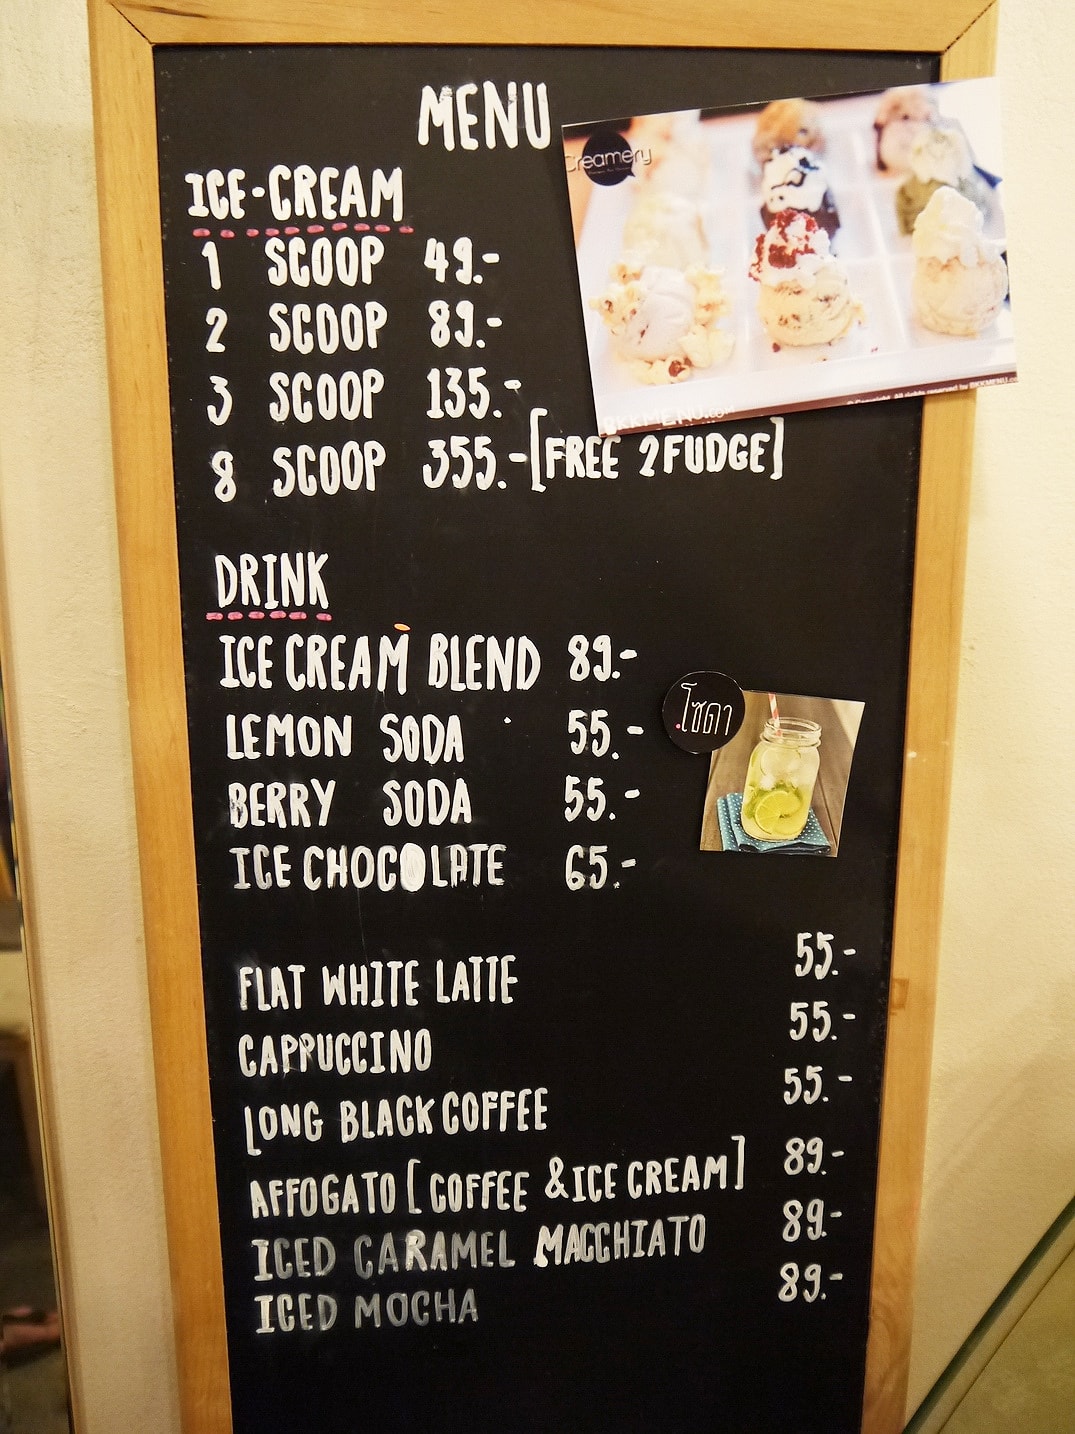 MENU
Creamery
ICE-CREAM
1 SCOOP 49.-
2 SCOOP 89.-
3 SCOOP 135.-
8 SCOOP 355.-[FREE 2FUDGE]
BKKMENU.com
© Copyright. All rights reserved by BKKMENU.co
DRINK
ICE CREAM BLEND 89.-
LEMON SODA 55.-
โซดา
BERRY SODA 55.-
ICE CHOCOLATE 65.-
FLAT WHITE LATTE 55.-
CAPPUCCINO 55.-
LONG BLACK COFFEE 55.-
AFFOGATO [COFFEE & ICE CREAM] 89.-
ICED CARAMEL MACCHIATO 89.-
ICED MOCHA 89.-